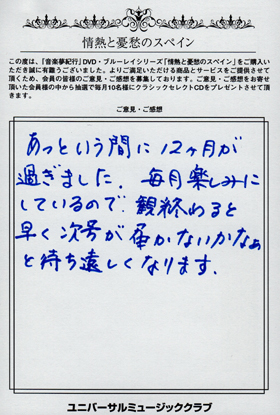 情熱と憂愁のスペイン
この度は、『音楽夢紀行』DVD・ブルーレイシリーズ「情熱と憂愁のスペイン」をご購入い
ただき誠に有難うございました。よりご満足いただける商品とサービスをご提供させて
頂くため、会員の皆様のご意見・ご感想を募集しております。ご意見・ご感想をお寄せ
頂いた会員様の中から抽選で毎月10名様にクラシックセレクトCDをプレゼントさせて頂
きます。
ご意見・ご感想
あっという間に12ヶ月が
過ぎました。毎月楽しみに
しているので、観終わると
早く次号が届かないかなぁ
と待ち遠しくなります。
ユニバーサルミュージッククラブ